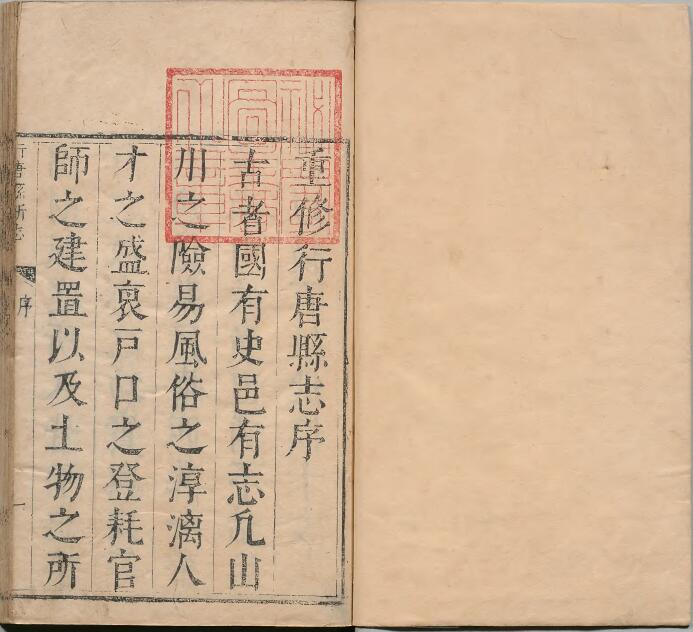 重修行唐縣志序
古者國有史邑有志凡山
川之險易風俗之淳漓人
才之盛衰戸口之登耗官
師之建置以及土物之所
行唐縣新志
序
一